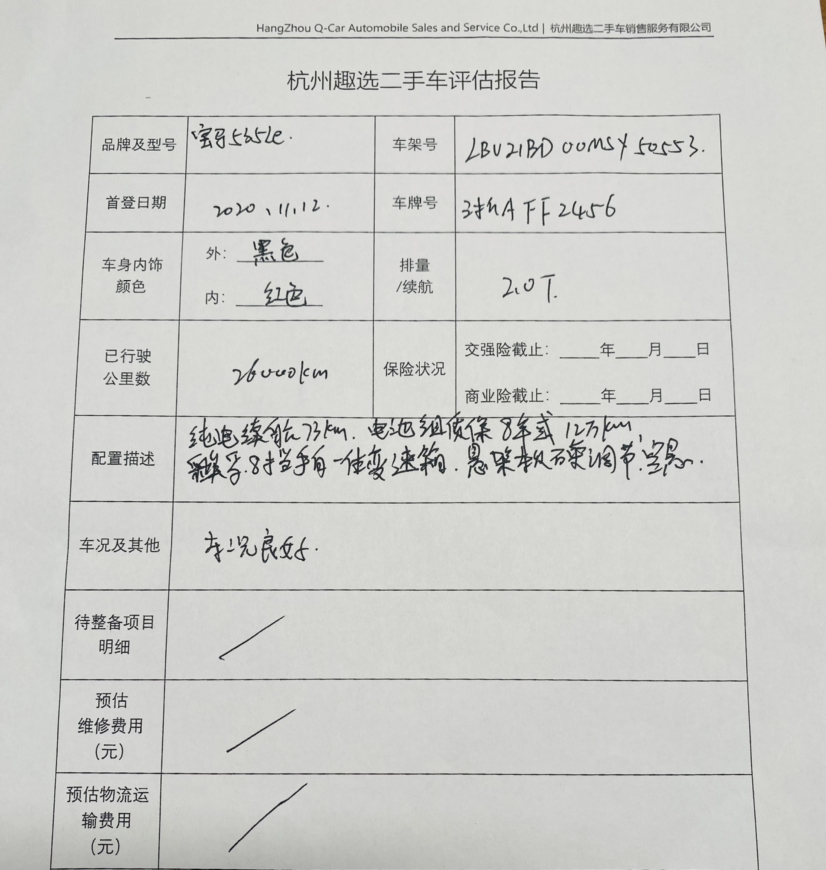 HangZhou Q-Car Automobile Sales and Service Co.,Ltd | 杭州趣选二手车销售服务有限公司
杭州趣选二手车评估报告
品牌及型号 宝马535Le. 车架号 LBV21BD00MSY50553.
首登日期 2020、11.12. 车牌号 浙A FF2456
车身内饰
颜色
外: 黑色
内: 红色
排量
/续航
2.0T.
已行驶
公里数
26000km
保险状况
交强险截止: ____年____月____日
商业险截止: ____年____月____日
配置描述
纯电续航73km. 电池组质保8年或12万km,
8挡手自一体变速箱. 悬架
车况及其他 车况良好.
待整备项目
明细
预估
维修费用
(元)
预估物流运
输费用
(元)